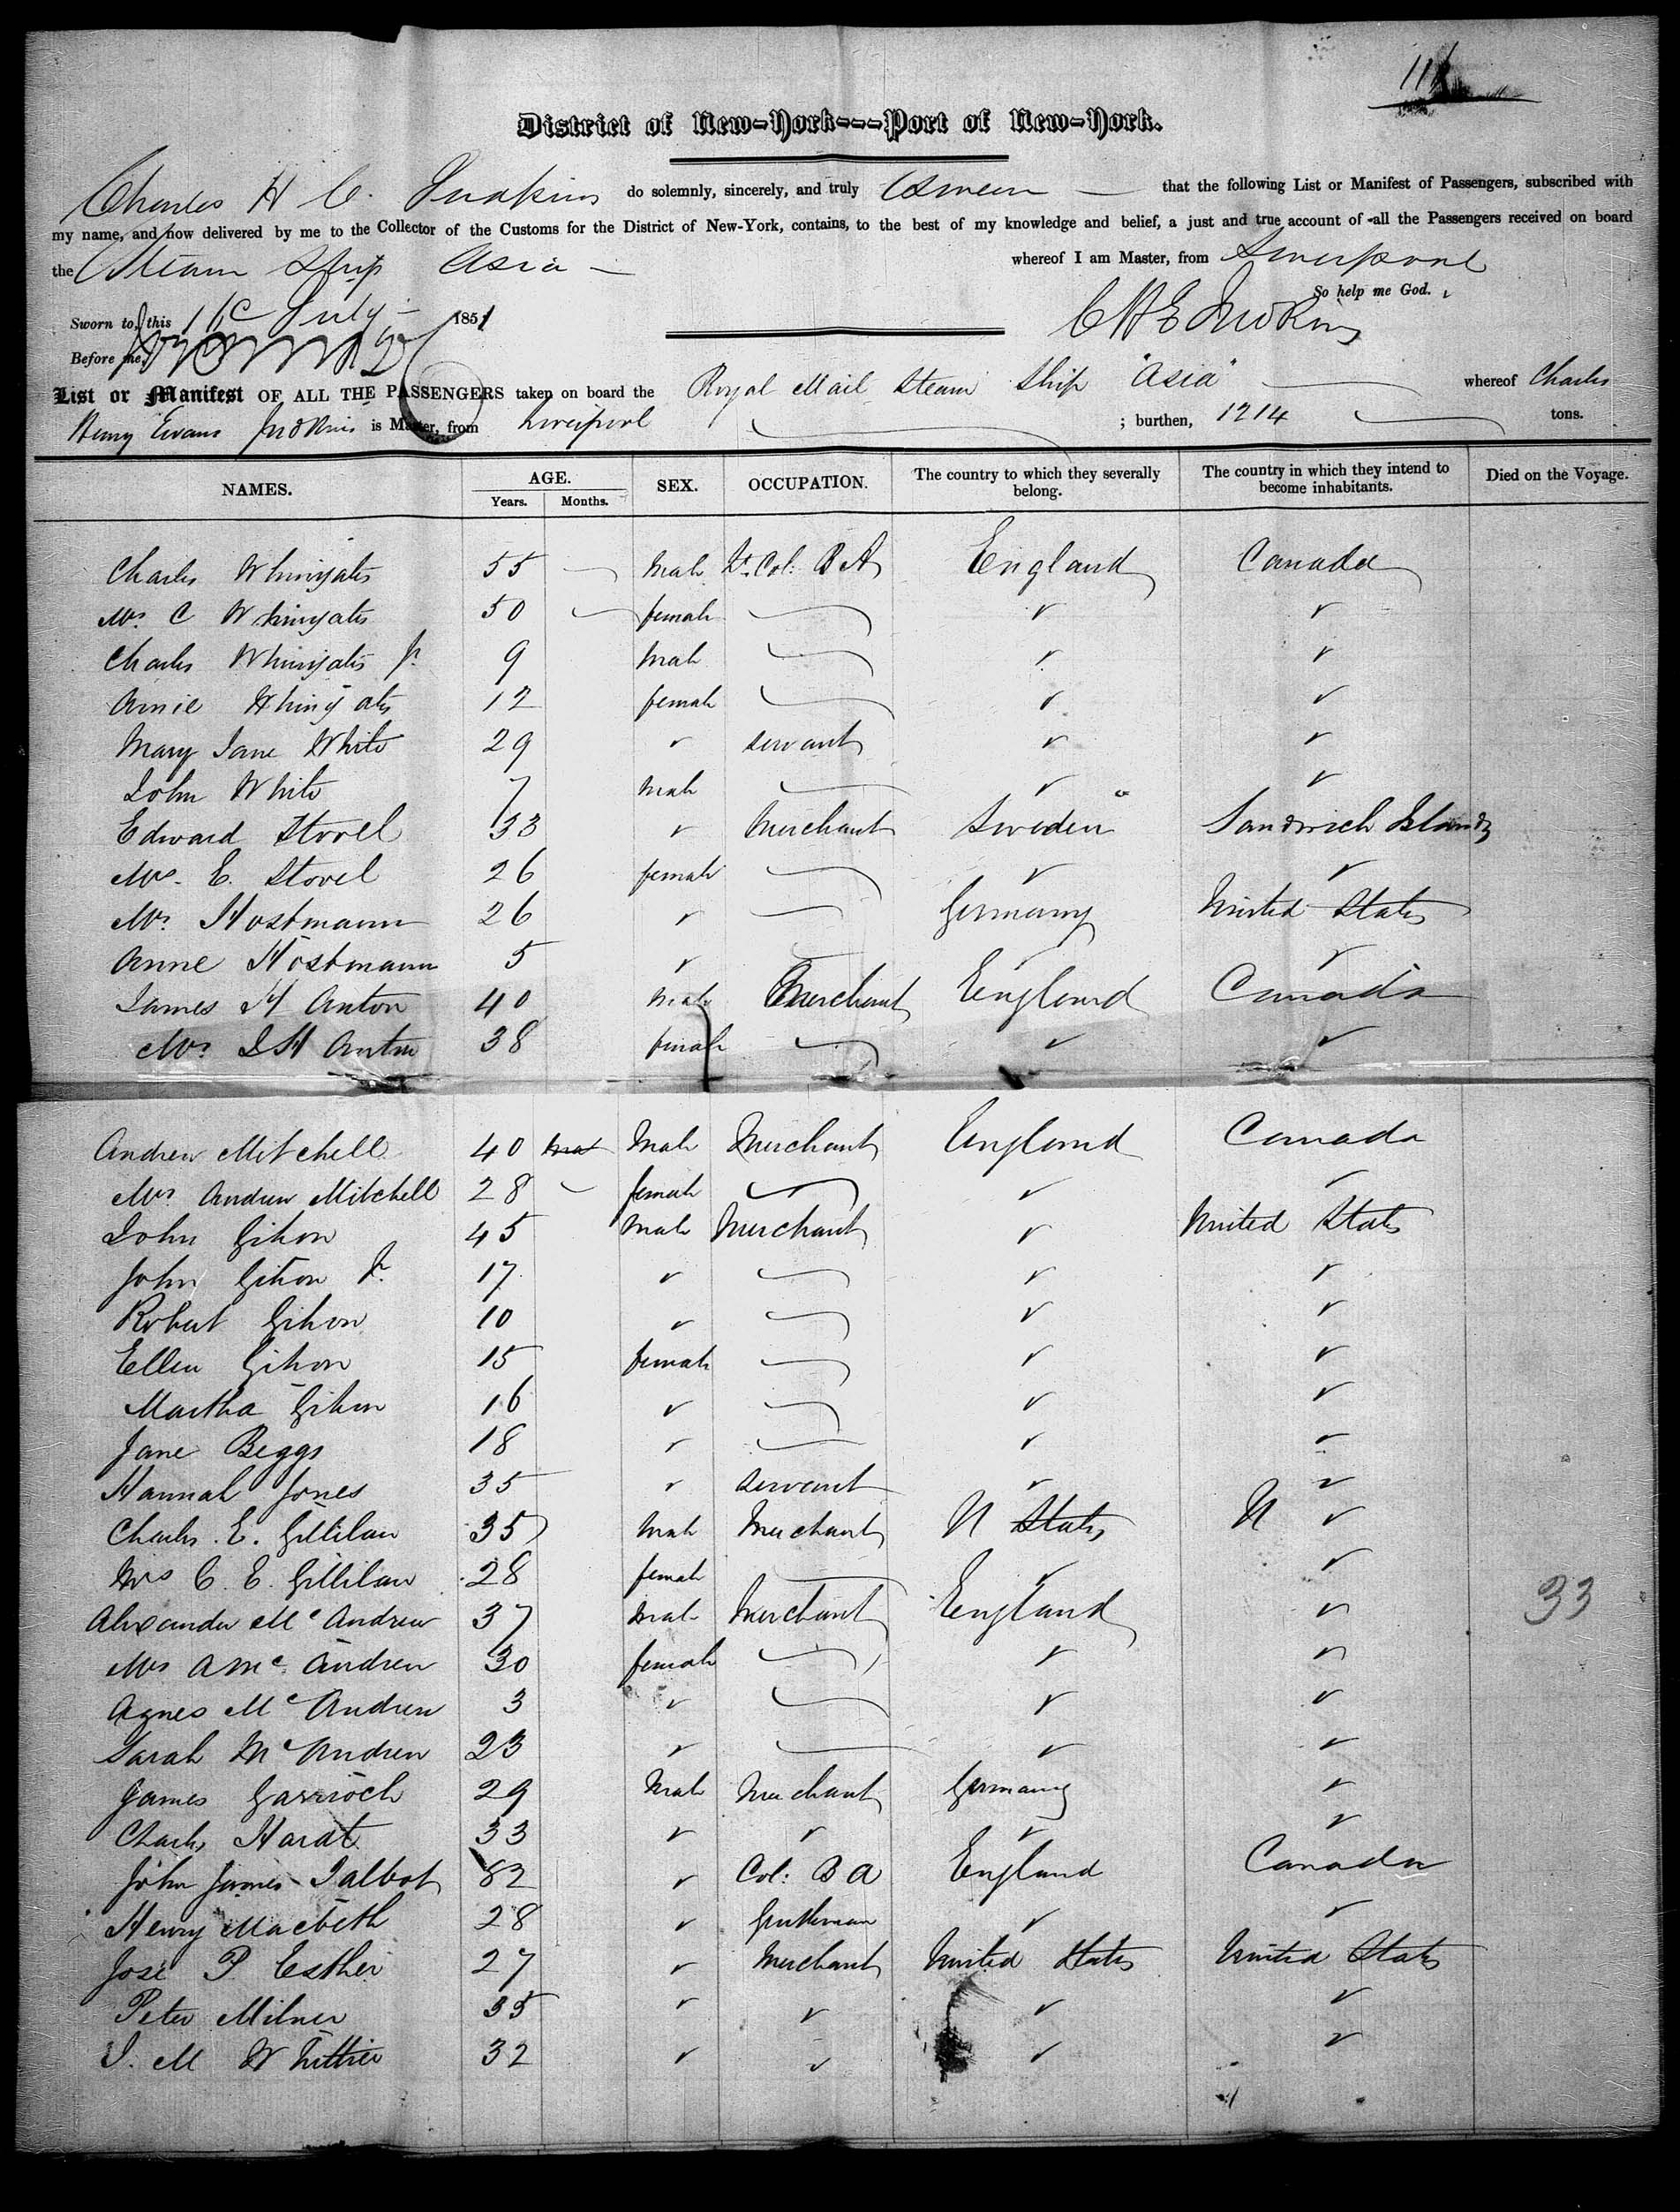 District of New-York---Port of New-York.
Charles H E Judkins do solemnly, sincerely, and truly Swear that the following List or Manifest of Passengers, subscribed with
my name, and now delivered by me to the Collector of the Customs for the District of New-York, contains, to the best of my knowledge and belief, a just and true account of all the Passengers received on board
the Steam Ship Asia whereof I am Master, from Liverpool
So help me God.
Sworn to, this July 1851
C H E Judkins
Before me,
List or Manifest OF ALL THE PASSENGERS taken on board the Royal Mail Steam Ship "Asia" whereof Charles
Henry Evans Judkins is Master, from Liverpool ; burthen, 1214 tons.
NAMES. AGE. SEX. OCCUPATION. The country to which they severally belong. The country in which they intend to become inhabitants. Died on the Voyage.
Years. Months.
Charles Whinyates 55 Male Lt. Col: R A England Canada
Mrs C Whinyates 50 female ✓ ✓
Charles Whinyates Jr. 9 Male ✓ ✓
Amie Whinyates 12 female ✓ ✓
Mary Jane White 29 ✓ servant ✓ ✓
John White 7 Male ✓ ✓
Edward Stovel 33 ✓ Merchant Sweden Sandwich Islands
Mrs. E. Stovel 26 female ✓ ✓
Mrs Hostmann 26 ✓ Germany United States
Anne Hostmann 5 ✓ ✓ ✓
James H Anton 40 Male Merchant England Canada
Mrs J H Anton 38 female ✓ ✓
Andrew Mitchell 40 Male Merchant England Canada
Mrs Andrew Mitchell 28 female ✓ ✓
John Gihon 45 Male Merchant ✓ United States
John Gihon Jr. 17 ✓ ✓ ✓
Robert Gihon 10 ✓ ✓ ✓
Ellen Gihon 15 female ✓ ✓
Martha Gihon 16 ✓ ✓ ✓
Jane Beggs 18 ✓ ✓ ✓
Hannah Jones 35 ✓ servant ✓ ✓
Charles. E. Gillilan 35 Male Merchant U States U ✓
Mrs C. E. Gillilan 28 female ✓ ✓
Alexander McAndrew 37 Male Merchant England ✓ 33
Mrs A McAndrew 30 female ✓ ✓
Agnes McAndrew 3 ✓ ✓ ✓
Sarah McAndrew 23 ✓ ✓ ✓
James Garrioch 29 Male Merchant Germany ✓
Charles Hardt 33 ✓ ✓ ✓ ✓
John James Talbot 82 ✓ Col: R A England Canada
Henry Macbeth 28 ✓ Gentleman ✓ ✓
José P. Esther 27 ✓ Merchant United States United States
Peter Milner 35 ✓ ✓ ✓ ✓
J. M Whittier 32 ✓ ✓ ✓ ✓